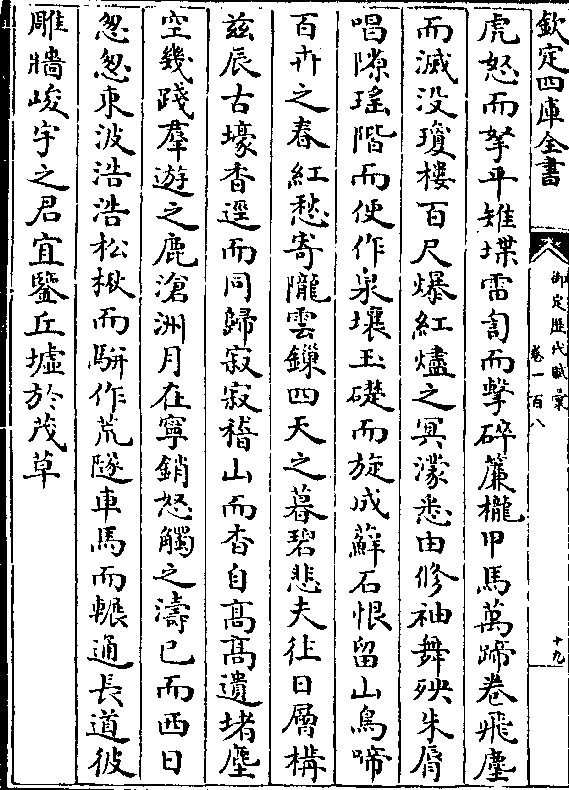 欽定四庫全書
御定歷代賦彙
卷一百八
十九
虎怒而拏平雉堞雷訇而擊碎簾櫳甲馬萬蹄卷飛塵
而滅没瓊樓百尺爆紅燼之冥濛悉由修袖舞殃朱脣
唱隙瑤階而便作泉壤玉礎而旋成蘚石恨留山鳥啼
百卉之春紅愁寄隴雲鏁四天之暮碧悲夫往日層構
兹辰古壕杳逕而同歸寂寂稽山而杳自髙髙遺堵塵
空幾踐羣遊之鹿滄洲月在寧銷怒觸之濤已而西日
怱怱東波浩浩松楸而騈作荒隧車馬而輾通長道彼
雕牆峻宇之君宜鑒丘墟於茂草